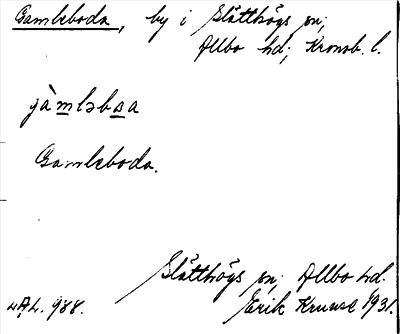 Gamleboda, by i Slätthögs sn;
Allbo hd; Kronob. l.
gàmləbɷa
Gamleboda.
Slätthögs sn; Allbo hd.
LAL. 988. Erik Kruuse 1931.